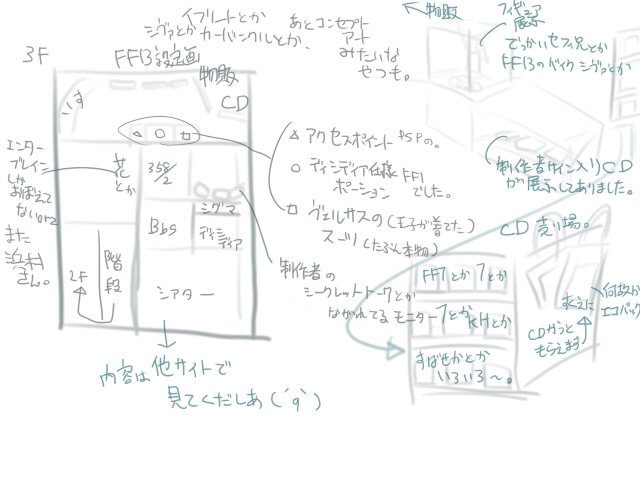 イフリートとか
シヴァとかカーバンクルとか、
あとコンセプト
アート
みたいな
やつも。
物販
フィギュア
展示
でっかいセフィ兄とか
FF13のバイクシヴァとか
3F
FF13設定画
物販
CD
いす
△ ○ □
△ アクセスポイント PSPの。
○ ディシディア仕様 FF1
ポーション でした。
□ ヴェルサスの(王子が着てた)
スーツ(たぶん本物)
制作者サイン入りCD
が展示してありました。
CD 売り場。
エンター
ブレイン
しか
おぼえて
ないorz
また
浜村
さん。
花
とか
358/2
Bbs
シグマ
ディシ
ディア
2F
階
段
シアター
制作者の
シークレットトークとか
ながれてるモニター
FF1とか7とか
7とかKHとか
すばせかとか
いろいろ〜。
何故か
エコバッグ
CDかうと
もらえます
内容は他サイトで
見てくだしあ(´q`)